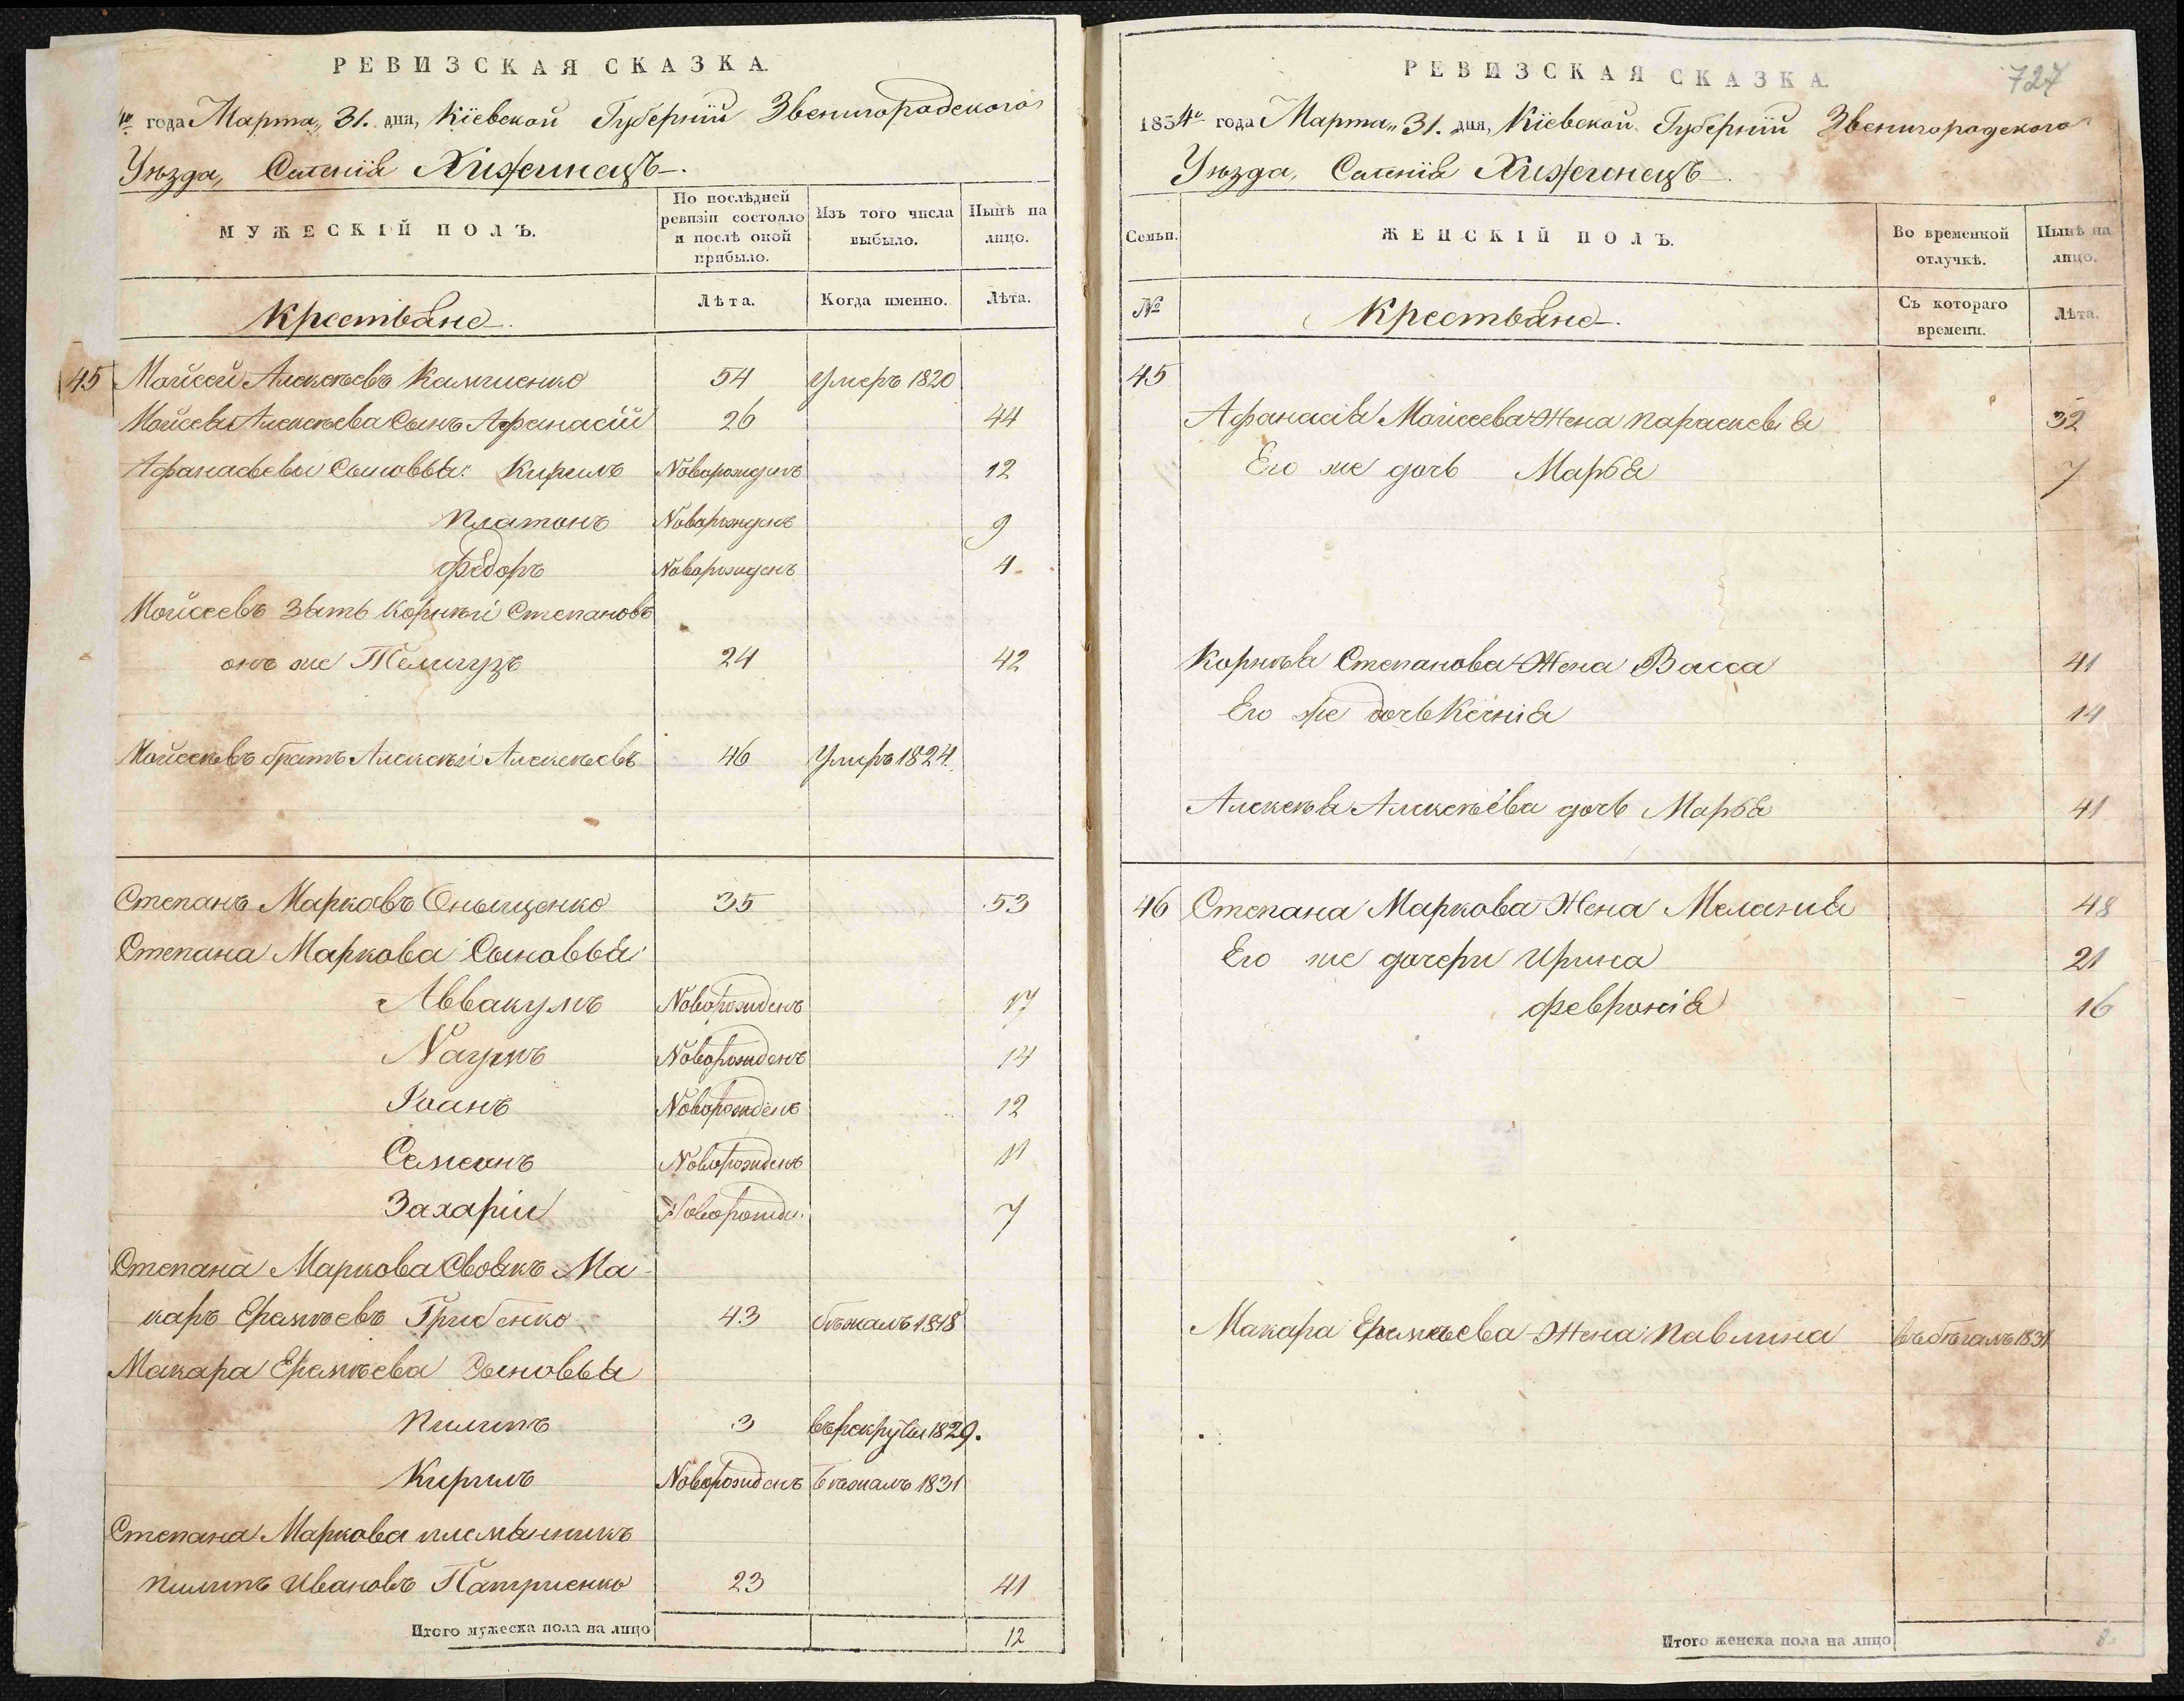 РЕВИЗСКАЯ СКАЗКА.
4го года Марта„ 31. дня, Кіевской Губерніи Звенигородского
Уѣзда, Селенія Хижинецъ.
МУЖЕСКІЙ ПОЛЪ.
По послѣдней ревизіи состояло и послѣ оной прибыло.
Изъ того числа выбыло.
Нынѣ на лицо.
Крестьяне.
Лѣта.
Когда именно.
Лѣта.
45 Мойсей Алексѣевъ 54 Умеръ 1820
Мойсея Алексѣева Сынъ Афанасій 26 44
Афанасьевы Сыновья: Кирилъ Новорожденъ 12
Платонъ Новорожденъ 9
Федоръ Новорожденъ 4
Мойсеевъ Зять Корнѣй Степановъ
онъ же 24 42
Мойсеевъ братъ Алексѣй Алексѣевъ 46 Умеръ 1824.
Степанъ Марковъ Оныщенко 35 53
Степана Маркова Сыновья:
Аввакумъ Новорожденъ 17
Наумъ Новорожденъ 14
Іоанъ Новорожденъ 12
Семенъ Новорожденъ 11
Захарій Новорожде: 7
Степана Маркова Своякъ Ма-
каръ Еремѣевъ Грибенко 43 бѣжалъ 1818
Макара Еремѣева Сыновья
Пилипъ 3 въ рекруты 1829.
Кирилъ Новорожденъ Бѣжалъ 1831
Степана Маркова племянникъ
Пилипъ Ивановъ 23 41
Итого мужеска пола на лицо 12
727
РЕВИЗСКАЯ СКАЗКА.
1834го года Марта„ 31. дня, Кіевской Губерніи Звенигородского
Уѣзда, Селенія Хижинецъ.
Семьи.
ЖЕНСКІЙ ПОЛЪ.
Во временной отлучкѣ.
Нынѣ на лицо.
№
Крестьяне.
Съ котораго времени.
Лѣта.
45
Афанасія Мойсеева Жена Параскевія 32
Его же дочь Марѳа 7
Корнѣя Степанова Жена Васса 41
Его же дочь Ксенія 14
Алексѣя Алексѣева дочь Марѳа 41
46 Степана Маркова Жена Меланія 48
Его же дочери Ирина 21
Февронія 16
Макара Еремѣева Жена Павлина въ бѣгахъ 1831
Итого женска пола на лицо 8